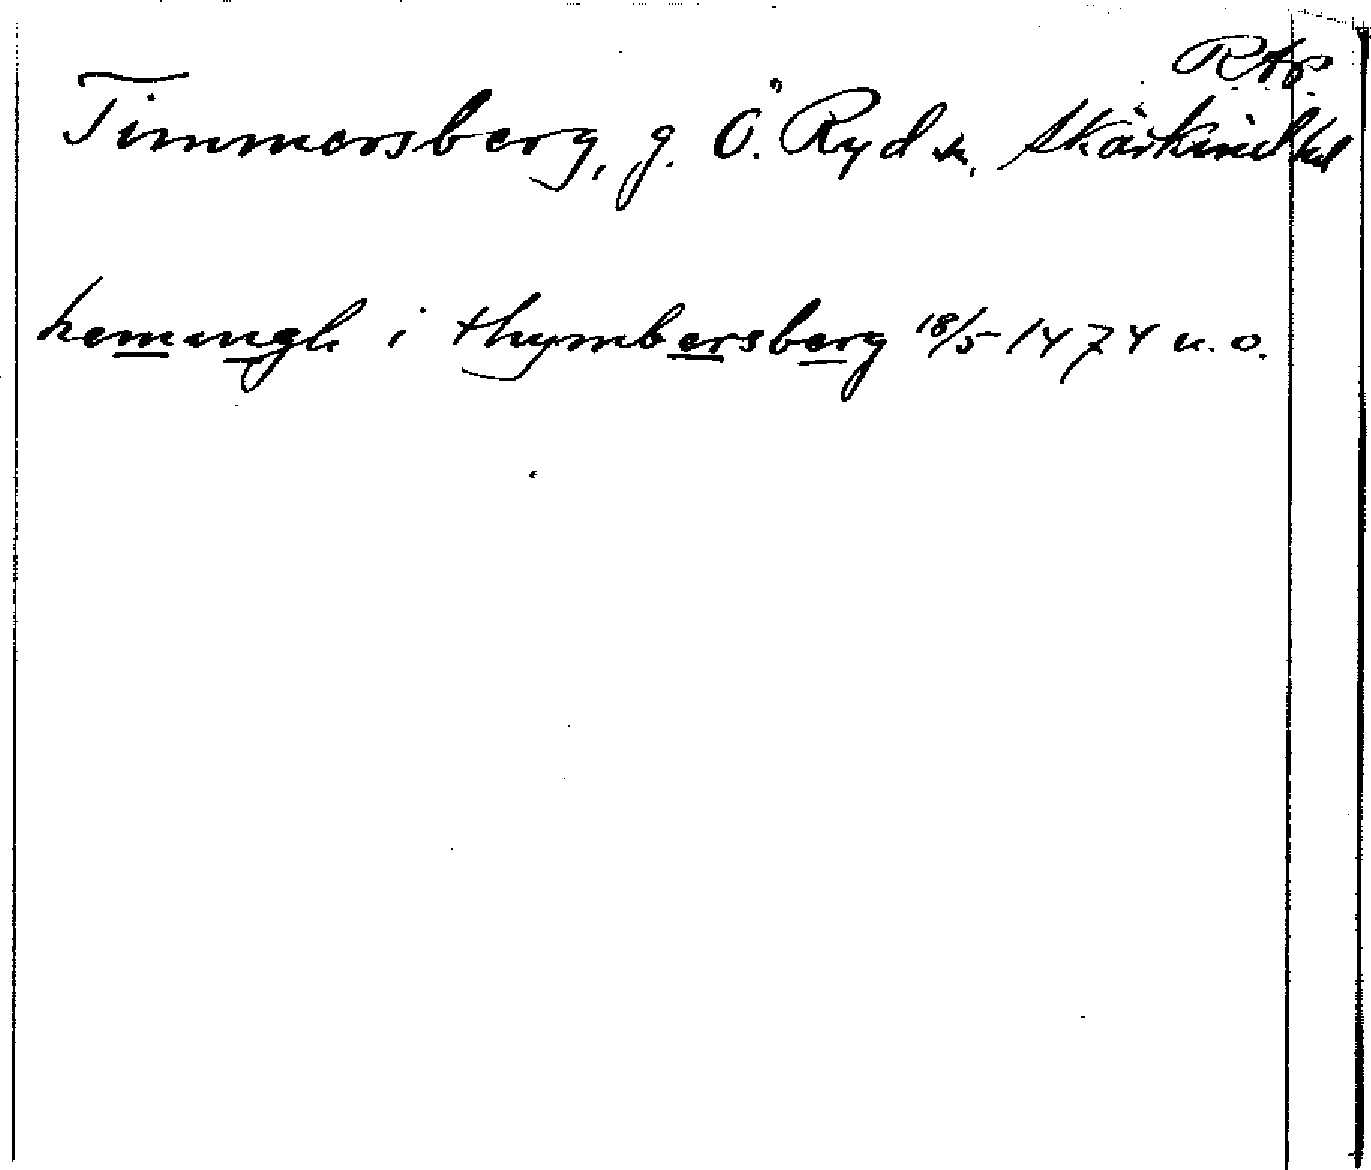 RAp.
Timmersberg, g. Ö. Ryd sn, Skärkind hd
hemingh i thymbersberg 18/5 1474 u. o.